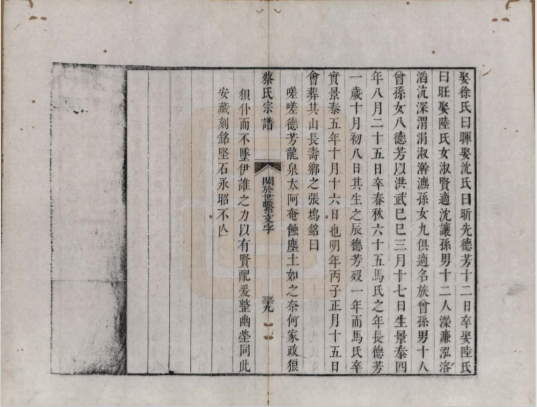 娶徐氏曰暉娶沈氏曰昕先德芳十二日卒娶陸氏
曰旺娶陸氏女淑賢適沈讓孫男十二人濚濂泓溶
滔沆深渭涓淑瀚瀌孫女九俱適名族曾孫男十八
曾孫女八德芳以洪武己巳三月十七日生景泰四
年八月二十五日卒春秋六十五馬氏之年長德芳
一歲十月初八日其生之辰德芳歿一年而馬氏卒
實景泰五年十月十六日也明年丙子正月十五日
會葬其山長壽鄉之張塢銘曰
嗟嗟德芳龍泉太阿奄蝕塵土如之奈何家政狼
狽仆而不墜伊誰之力以有賢配爰整幽塋同此
安藏刻銘堅石永耶不亾
蔡氏宗譜
關於世繫文字
九